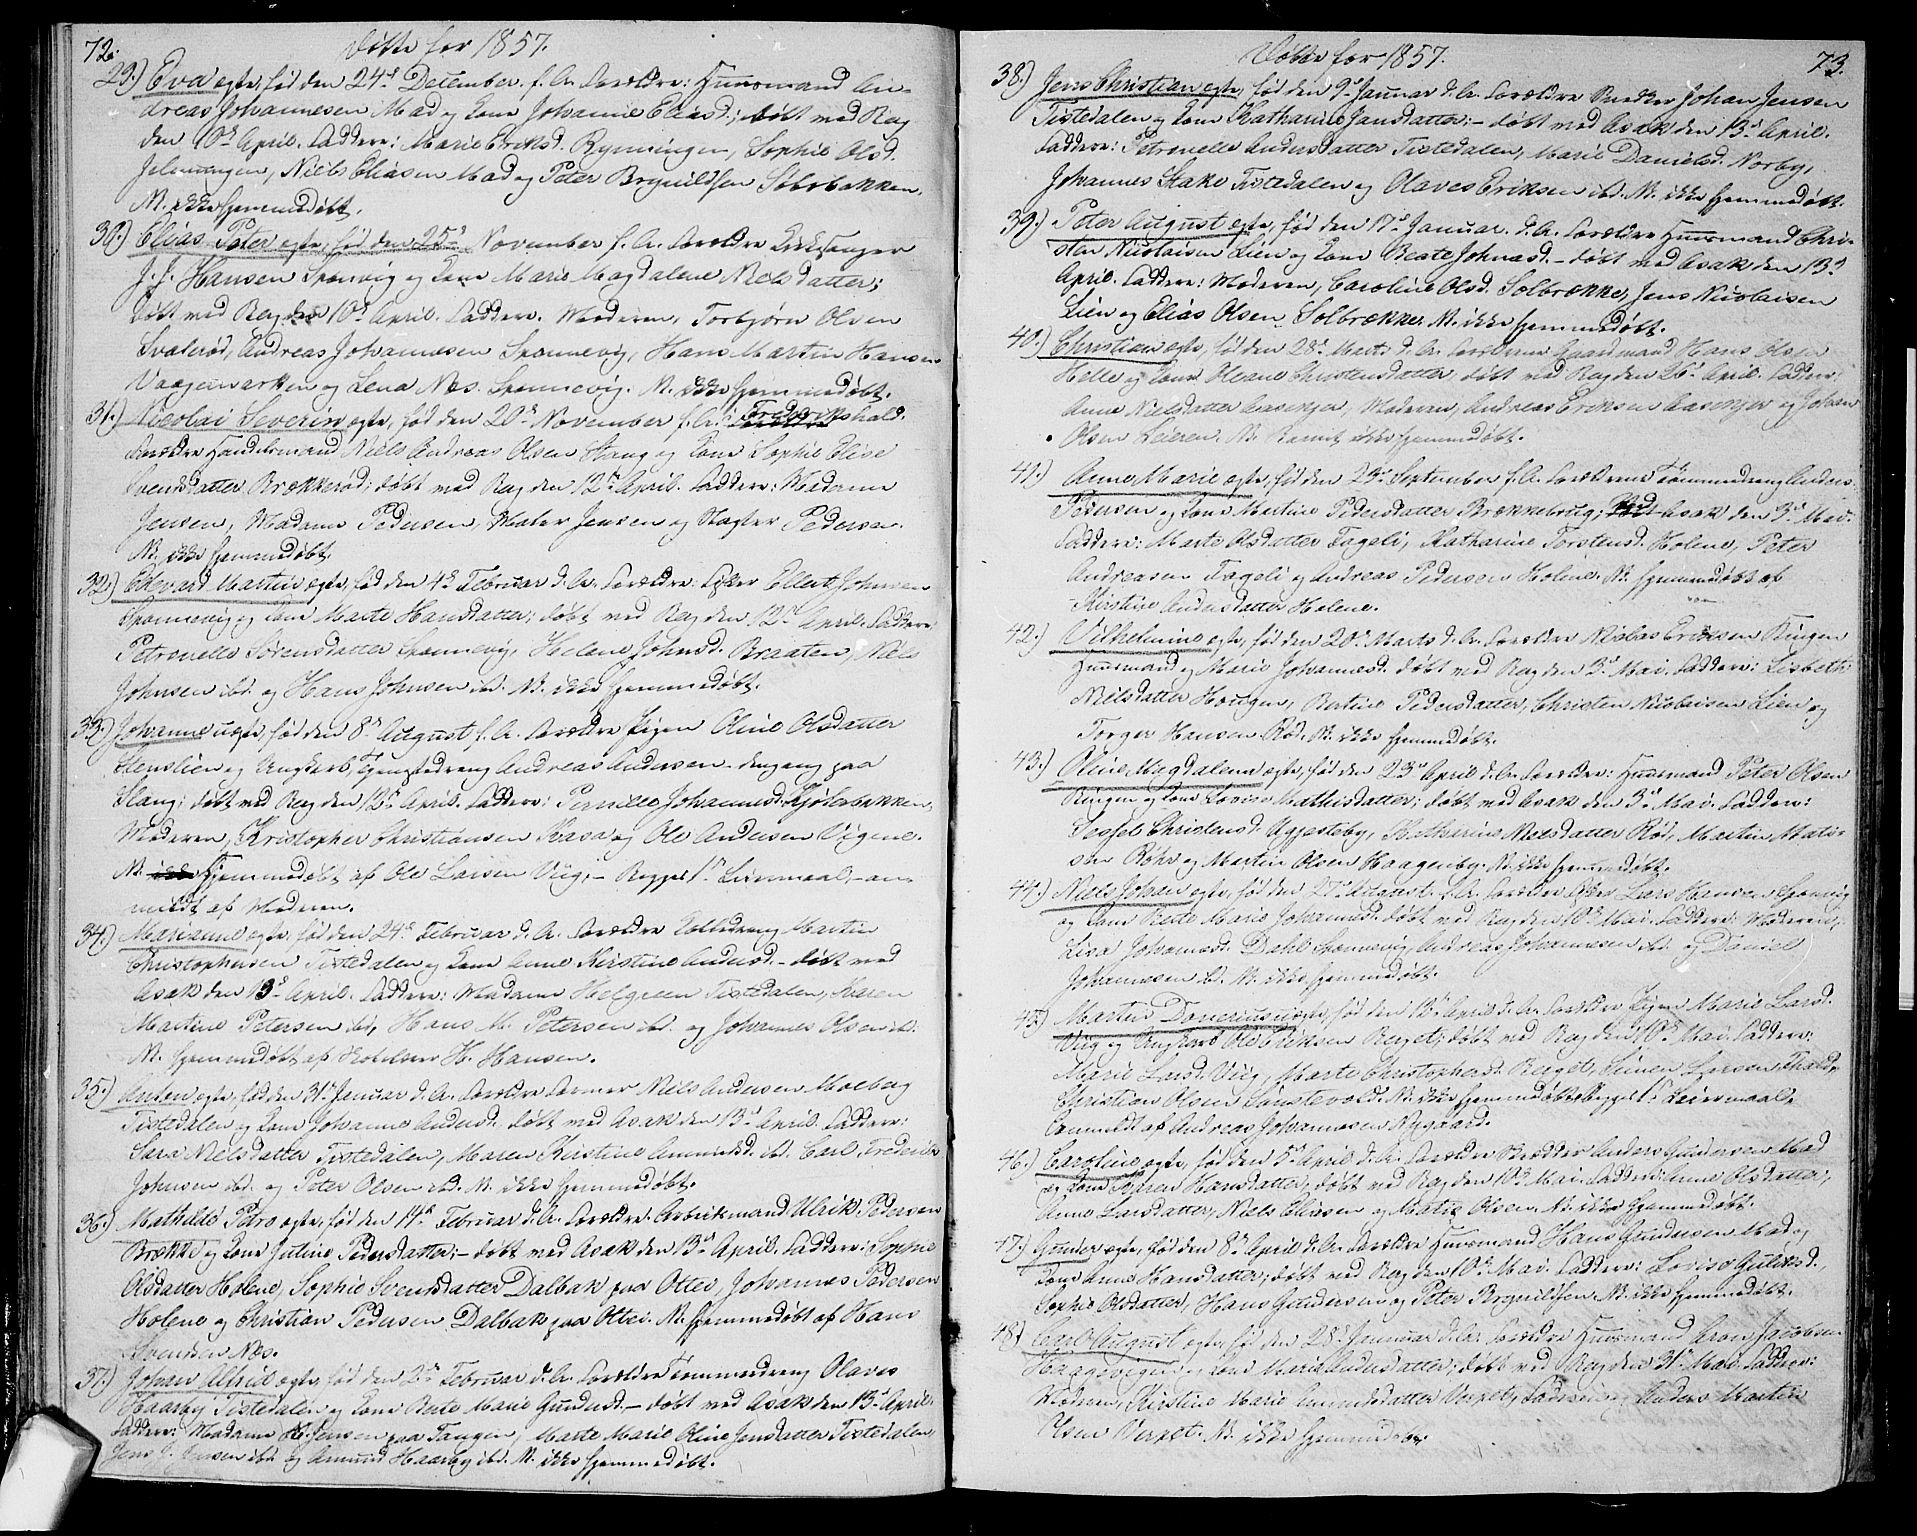 72. Døbte for 1857.
29.) Eva ægte, fød den 24de December f. A. Forældre: Huusmand An-
dreas Johannesen Mad og Kone Johanne Eliasd.; døbt ved Rag
den 10de April. Faddere: Marie Eriksd. Rynningen, Sophie Olsd.
Niels Eliasen Mad og Peter Brynildsen Solbrækken.
N. ikke hjemmedøbt.
30.) Elias Peter ægte, fød den 25de November f. A. Forældre Kirkesanger
J. J. Hansen Sponvig og Kone Marie Magdalene Nielsdatter;
døbt ved Rag den 10de April. Faddere: Moderen, Torbjørn Olsen
Svalerød, Andreas Johannesen Sponnevig, Hans Martin Hansen
Vaagemarken og Lena Næs. Sponnevig. N. ikke hjemmedøbt.
31.) Nicolai Severin ægte, fød den 20de November f. A. i Fredrikshald.
Forældre Handelsmand Niels Andreas Olsen Stang og Kone Sophie Elise
Svendsdatter Brækkerød; døbt ved Rag den 12te April. Faddere: Madame
Jensen, Madame Pedersen, Maler Jensen og Slagter Pedersen.
N. ikke hjemmedøbt.
32.) Edevard Martin ægte, fød den 4de Februar d. A. Forældre: Fisker Ellert Johnsen
Sponnevig og Kone Marte Hansdatter; døbt ved Rag den 12te April. Faddere:
Petronelle Sørensdatter Sponnevig, Helene Johnsd. Braaten, Niels
Johnsen ibd. og Hans Johnsen ibd. N. ikke hjemmedøbt.
33.) Johanne uægte, fød den 8de August f. A. Forældre Pigen Oline Olsdatter
Stenslien og Ungkarl, Tjenestedreng Andreas Andersen dengang paa
Stang; døbt ved Rag den 12te April. Faddere: Pernille Johannesd. Kjølerbakken,
Moderen, Kristopher Christiansen Kasa og Ole Andersen Vigene.
N. ikke hjemmedøbt af Ole Larsen Viig. - Begges 1ste Leiermaal, an-
meldt af Moderen.
34.) Marianne ægte, fød den 24de Februar d. A. Forældre Martin
Christophersen Tistedalen og Kone Anne Kirstine Andersd. - døbt ved
Asak den 13de April. Faddere: Madame Helgesen Tistedalen, Karen
Martine Petersen ibd., Hans M. Petersen ibd. og Johannes Olsen ibd.
N. hjemmedøbt af H. Hansen.
35.) Anton ægte, fød den 31te Januar d. A. Forældre Former Niels Andersen Moeberg
Tistedalen og Kone Johanne Andersd. døbt ved Asak den 13de April. Faddere:
Sara Nielsdatter Tistedalen, Maren Kirstine ibd. Carl Frederik
Johnsen ibd. og Peter Olsen ibd. N. ikke hjemmedøbt.
36.) Mathilde Petra ægte, fød den 14de Februar d. A. Forældre: Arbeidsmand Ulrik Pedersen
Brække og Kone Juline Pedersdatter; - døbt ved Asak den 13de April. Faddere: Sophie
Olsdatter Holene, Sophie Svendsdatter Dalbak paa Ottei, Johannes Pedersen
Holene og Christian Pedersen Dalbak paa Ottei. N. hjemmedøbt af Hans
Svendsen Næs.
37.) Johan Alfred ægte, fød den 2den Februar d. A. Forældre Tømmerdreng Olaves
Haarby Tistedalen og Kone Berte Marie Gundersd. - døbt ved Asak den 13de April.
Faddere: Madame M. Jensen paa Tangen, Marte Marie Oline Jensdatter Tistedalen,
Jens J. Jensen ibd. og Amund Haarby ibd. N. ikke hjemmedøbt.
Døbte for 1857. 73.
38.) Jens Christian ægte, fød den 9de Januar d. A. Forældre Snedker Johan Jensen
Tistedalen og Kone Katharine Jansdatter; - døbt ved Asak den 13de April.
Faddere: Petronelle Andersdatter Tistedalen, Marie Danielsd. Norby,
Johannes Stake Tistedalen og Olaves Eriksen ibd. N. ikke hjemmedøbt.
39.) Peter August ægte, fød den 17de Januar d. A. Forældre Huusmand Chri-
sten Nicolaisen Lien og Kone Beate Johnsd. - døbt ved Asak den 13de
April. Faddere: Moderen, Caroline Olsd. Solbrække, Jens Nicolaisen
Lien og Elias Olsen Solbrække. N. ikke hjemmedøbt.
40.) Christian ægte, fød den 28de Marts d. A. Forældrene Gaardmand Hans Olsen
Helle og Kone Oleane Christensdatter, døbt ved Rag den 26de April. Faddere:
Anne Nielsdatter Aasenger, Moderen, Andreas Eriksen Aasenger og Johan
Olsen Leieren. N. Barnet ikke hjemmedøbt.
41.) Anne Marie ægte, fød den 29de September f. A. Forældrene Tømmerdreng Anders
Pedersen og Kone Martine Pedersdatter Brækkebrug; døbt Asak den 3de Mai.
Faddere: Marte Olsdatter Fageli, Katharine Torstensd. Holene, Peter
Andreasen Fageli og Andreas Pedersen Holene. N. hjemmedøbt af
Kirstine Andersdatter Holene.
42.) Vilhelmine ægte, fød den 20de Marts d. A. Forældre Niclas Eriksen Ringen
Huusmand og Marie Johannesd. døbt ved Rag den 3de Mai. Faddere: Lisbeth
Nielsdatter Hougen, Bertine Pedersdatter, Christen Nicolaisen Lien og
Torger Hansen Rød. N. ikke hjemmedøbt.
43.) Oline Magdalena ægte, fød den 23de April d. A. Forældre: Huusmand Peter Olsen
Ringen og Kone Lovise Mathisdatter; døbt ved Asak den 3de Mai. Faddere:
Sessel Christensd. Ugjesteby, Katherine Nielsdatter Rød, Martin Mati-
sen Röhr og Martin Olsen Haagenby. N. ikke hjemmedøbt.
44.) Niels Johan ægte, fød den 27de August f. A. Forældre Fisker Lars Hansen Sponvig
og Kone Berte Marie Johannesd. døbt ved Rag den 10de Mai. Faddere: Moderen,
Lisa Johannesd. Dahl Sponnevig, Andreas Johannesen ibd. og Daniel
Johannesen ibd. N. ikke hjemmedøbt.
45.) Martin uægte, fød den 12te April d. A. Forældre Pigen Marie Larsd.
Viig og Ungkarl Ole Eriksen Berget; døbt ved Rag den 10de Mai. Faddere:
Marie Larsd. Viig, Marte Christophersd. Berget, Simen Larsen
Christian Olsen N. ikke hjemmedøbt. Begges 1ste Leiermaal.
Anmeldt af Andreas Johannesen Nygaard.
46.) Caroline ægte, fød den 5te April d. A. Forældre Skrædder Anders Gundersen Mad
og Kone Karen Hansdatter, døbt ved Rag den 10de Mai. Faddere: Anne Olsdatter,
Anne Larsdatter, Niels Eliasen og Matis Olsen. N. ikke hjemmedøbt.
47.) Gunder ægte, fød den 8de April d. A. Forældre Huusmand Hans Gundersen Mad og
Kone Anne Hansdatter; døbt ved Rag den 10de Mai. Faddere: Lovise Guliksd.,
Sophie Olsdatter, Hans Gundersen og Peter Brynildsen. N. ikke hjemmedøbt.
48.) Carl August ægte, fød den 28de Januar d. A. Forældre Huusmand Aron Jacobsen
Haagevigen og Kone Marie Andersdatter; døbt ved Rag den 31te Mai. Faddere:
Moderen, Kirstine Marie Verpet, og Anders Martin
Olsen Verpet. N. ikke hjemmedøbt.